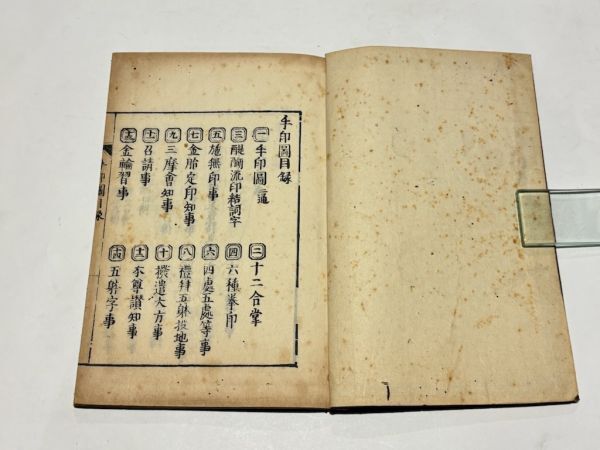 手印圖目録
一 手印圖 一通
二 十二合掌
三 醍醐流印結詞字
四 六種拳印
五 施無印事
六 四處五處等事
七 金胎定印知事
八 禮拜五躰投地事
九 三摩會知事
十 撥遣大方事
十一 召請事
十二 本尊讃知事
十三 金輪習事
十四 五躰字事
手印圖目録